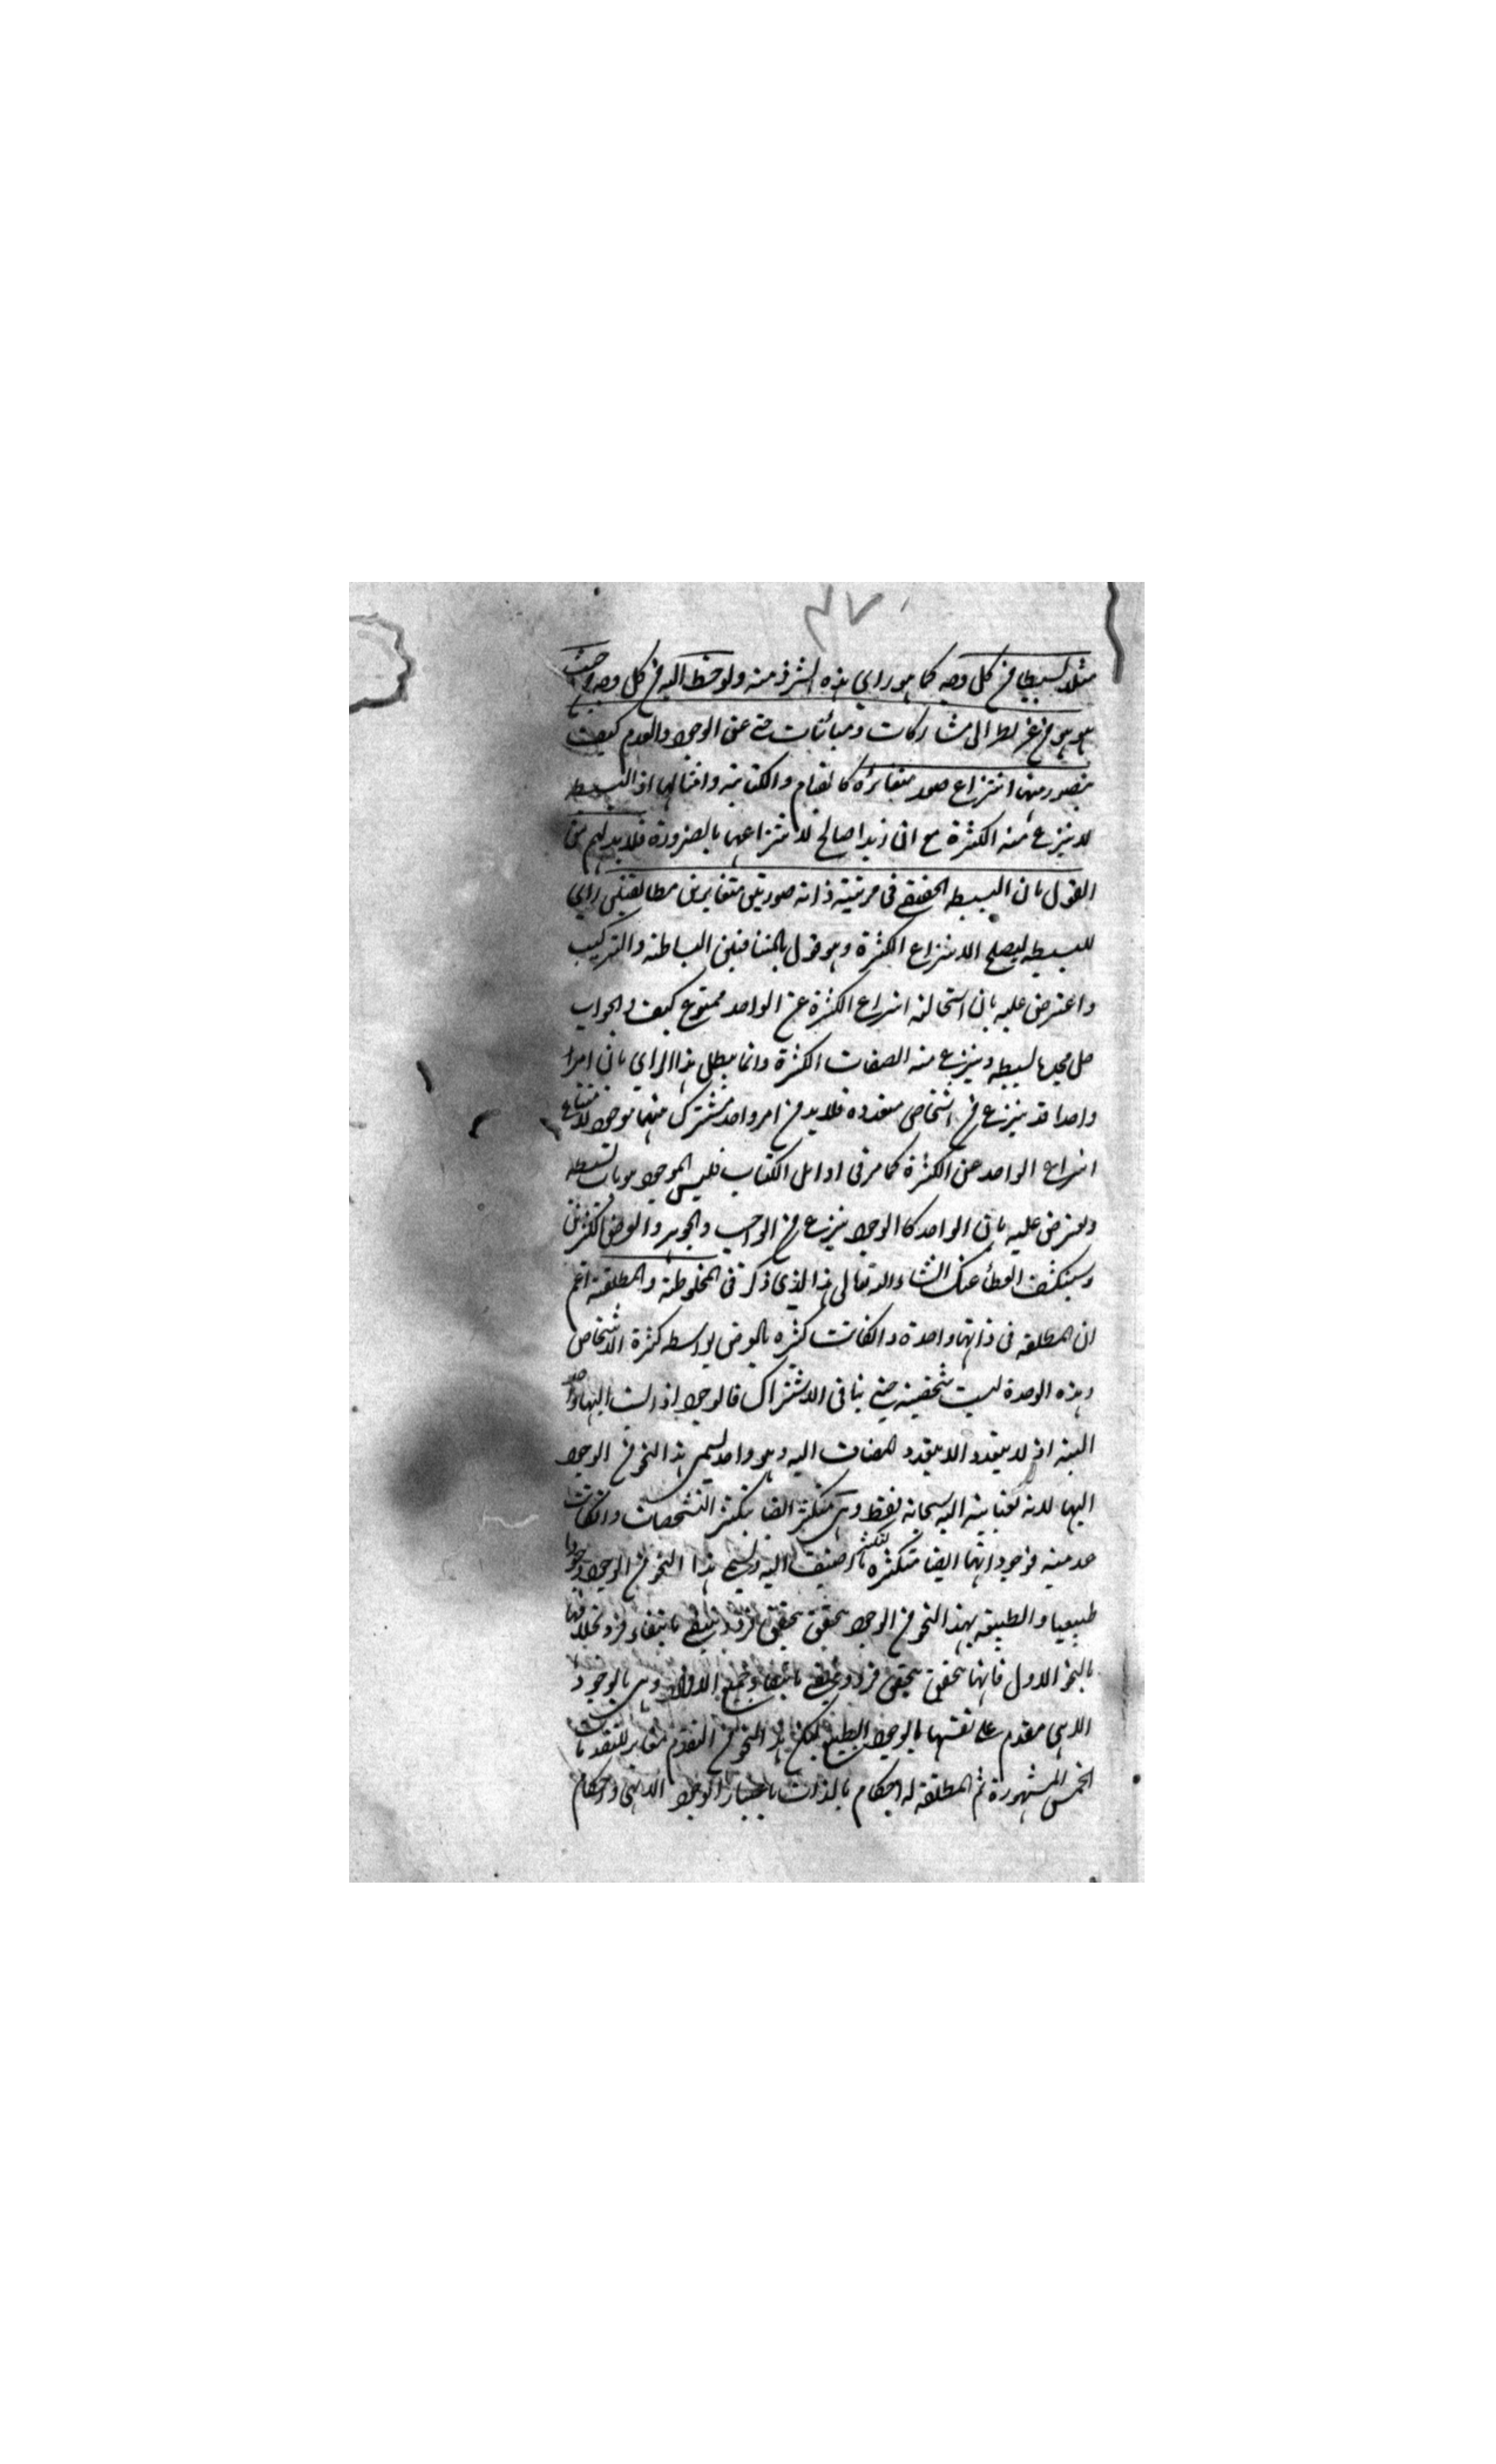 ٣٧
مثلا بسيطا من كل وجه كما هو راي هذه الشرذمة ولوحظ اليه من كل وجه حيث
هو هو من غير نظر الى مشاركات ومبائنات حتى عن الوجود والعدم كيف
يتصور منها انتزاع صور متغائرة كالقيام والكتابة وامثالها اذ البسيط
لا ينزع منه الكثرة مع ان زيدا صالح لانتزاعها بالضرورة فلا بد لهم من
القول بان البسيط الحقيقي في مرتبة ذاته صورتين متغايرتين مطابقتين
للبسيط ليصلح الانتزاع الكثرة وهو قول بالمتنافيين البساطة والتركيب
واعترض عليه بان استحالة انتزاع الكثرة عن الواحد ممنوع كيف والواجب
جل مجده بسيط وينزع منه الصفات الكثيرة وانما يبطل هذا الراي بان امرا
واحدا قد ينزع من اشخاص متعددة فلا بد من امر واحد مشترك منها موجود لامتناع
انتزاع الواحد عن الكثرة كما مر في اوائل الكتاب فليس الموجود هويات بسيطة
ويعترض عليه بان الواحد كالوجود ينزع من الواجب والجوهر والعرض
وسينكشف الغطأ عنك انشاء الله تعالى هذا الذي ذكر في المخلوطة والمطلقة اعم
ان المطلقة في ذاتها واحدة وانكانت كثيرة بالعرض بواسطه كثرة الاشخاص
وهذه الوحدة ليست شخصية حتى ينافي الاشتراك فالوجود اذا نسب اليها واحد
البتة اذ لا يتعدد الا بتعدد المضاف اليه وهو واحد يسمى هذا النحو من الوجود
الهيا لانه بعناية الهية سبحانه فقط وهي متكثرة ايضا بتكثر التشخصات وانكانت
فوجوداتها ايضا متكثرة بتكثر ما اضيف اليه ويسمى هذا النحو من الوجود وجودا
طبيعيا والطبيعة بهذا النحو من الوجود يتحقق بتحقق فرد وينتفي بانتفاء فرد بخلافها
بالنحو الاول فانها تتحقق بتحقق فرد وينتفي بانتفاء جميع الافراد وهي بالوجود
الالهي مقدم على نفسها بالوجود الطبيعي لكن هذا النحو من التقدم مغاير للتقدمات
الخمس المشهورة ثم المطلقة له احكام بالذات باعتبار الوجود الالهي واحكام